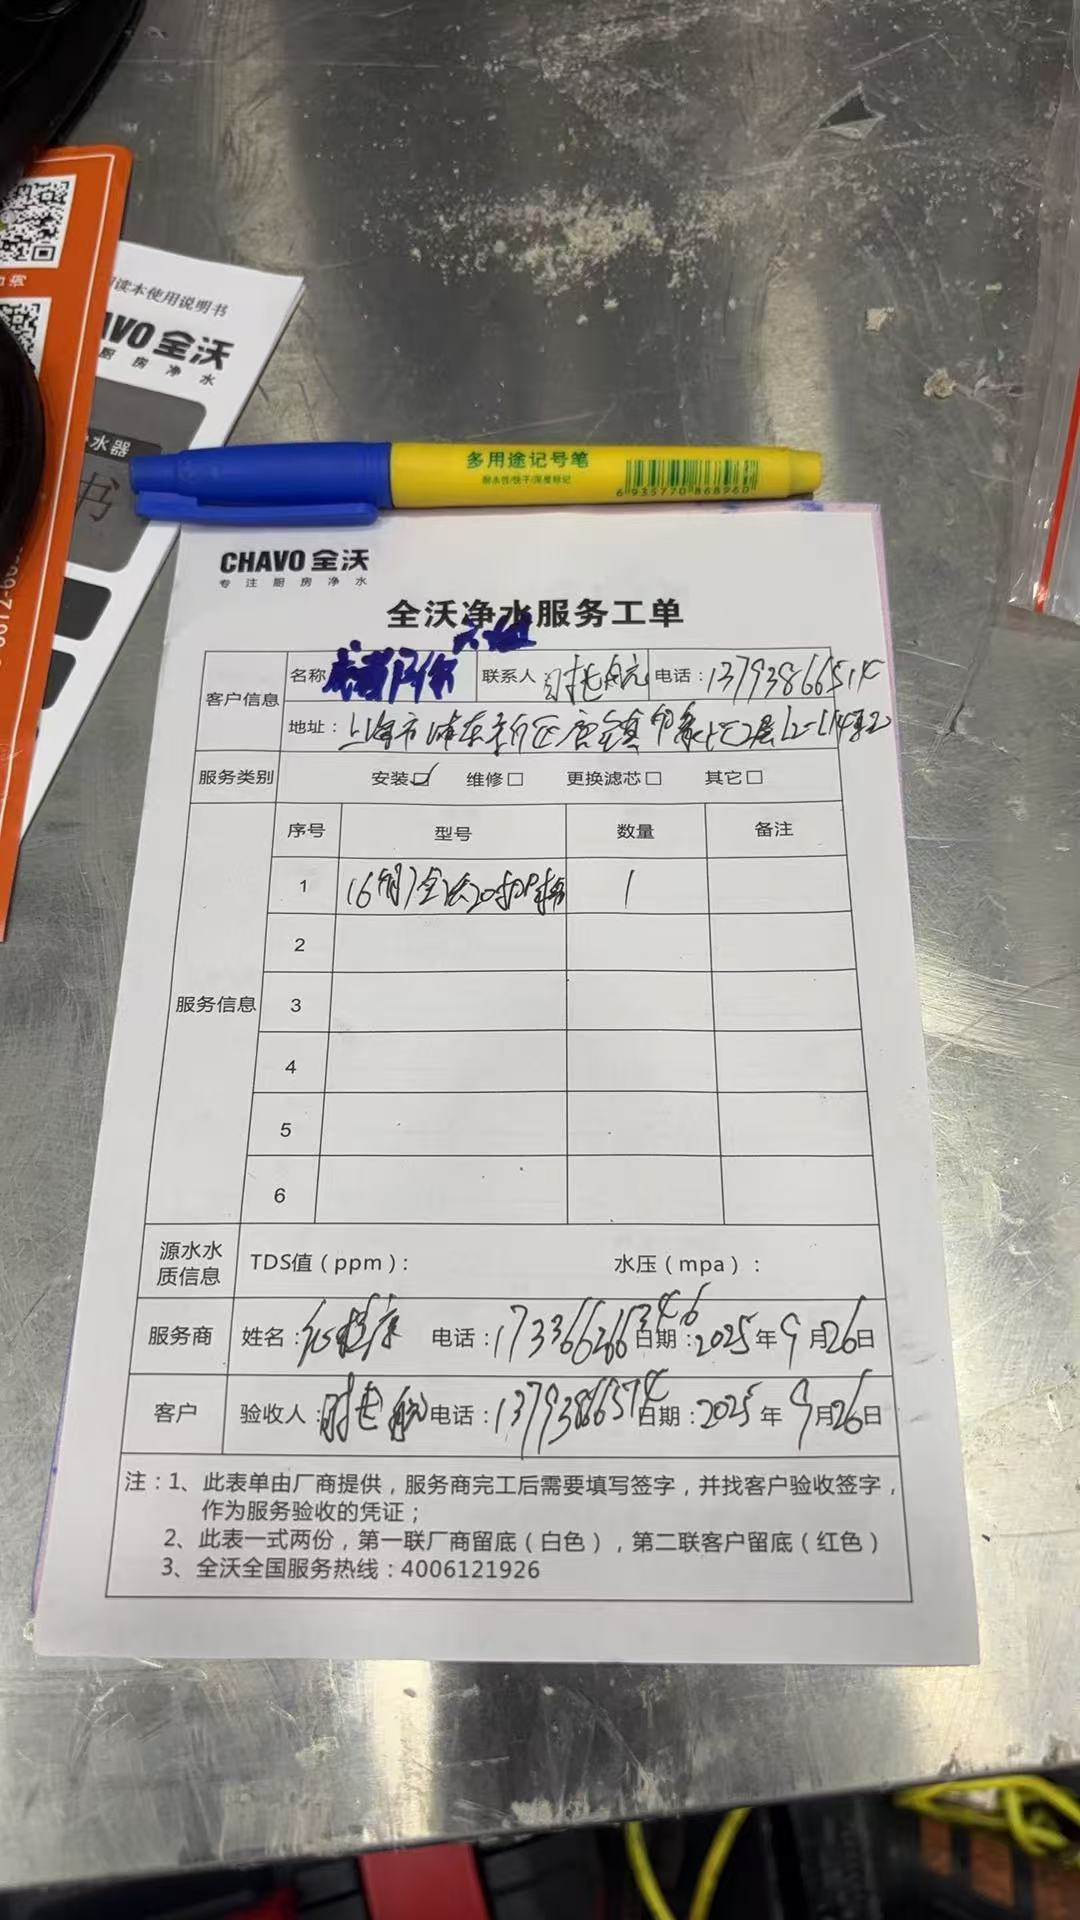 阅读本使用说明书
CHAVO 全沃
厨房净水
水器
书
多用途记号笔
耐水性/快干/深度标记
6 935770 868960
CHAVO 全沃
专注厨房净水
全沃净水服务工单
客户信息 名称 联系人 时 航 电话:13793866514
地址:上海市浦东新区唐镇印象 2层L2-
服务类别 安装☑ 维修□ 更换滤芯□ 其它□
服务信息 序号 型号 数量 备注
1 全沃20寸 1
2
3
4
5
6
源水水质信息 TDS值(ppm): 水压(mpa):
服务商 姓名: 电话:17336626346 日期:2025年9月26日
客户 验收人:时 航 电话:13793866514 日期:2025年9月26日
注:1、此表单由厂商提供,服务商完工后需要填写签字,并找客户验收签字,
作为服务验收的凭证;
2、此表一式两份,第一联厂商留底(白色),第二联客户留底(红色)
3、全沃全国服务热线:4006121926